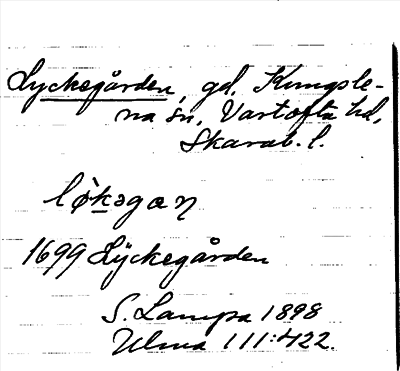 Lyckegården, gd, Kungsle-
na sn, Vartofta hd,
Skarab. l.
lø̀kəgan
1699 Lÿckegården
S. Lampa 1898
Ulma 111:422.